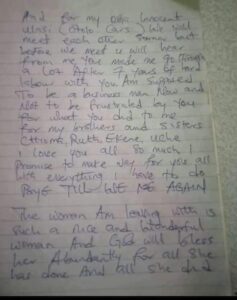 And for my Oga Innocent
Ulasi (Ototo Cars) We will
meet each other soonan but
before we meet u will hear
from me you made me go Through
a lot After 7 years of hard
labour with you Am Supposed
To be a business man Now and
Not to be frustrated by you
For what you did to me
for my brothers and Sisters
Chioma, Ruth, Ekene, Uche
I love you all so much I
Promise to make way for you all
with everything I have to do
BOYE TILL WE ME AGAIN
The woman Am leaving with is
such a nice and wonderful
woman And God will bless
her Abundantly for all she
has done And all she did